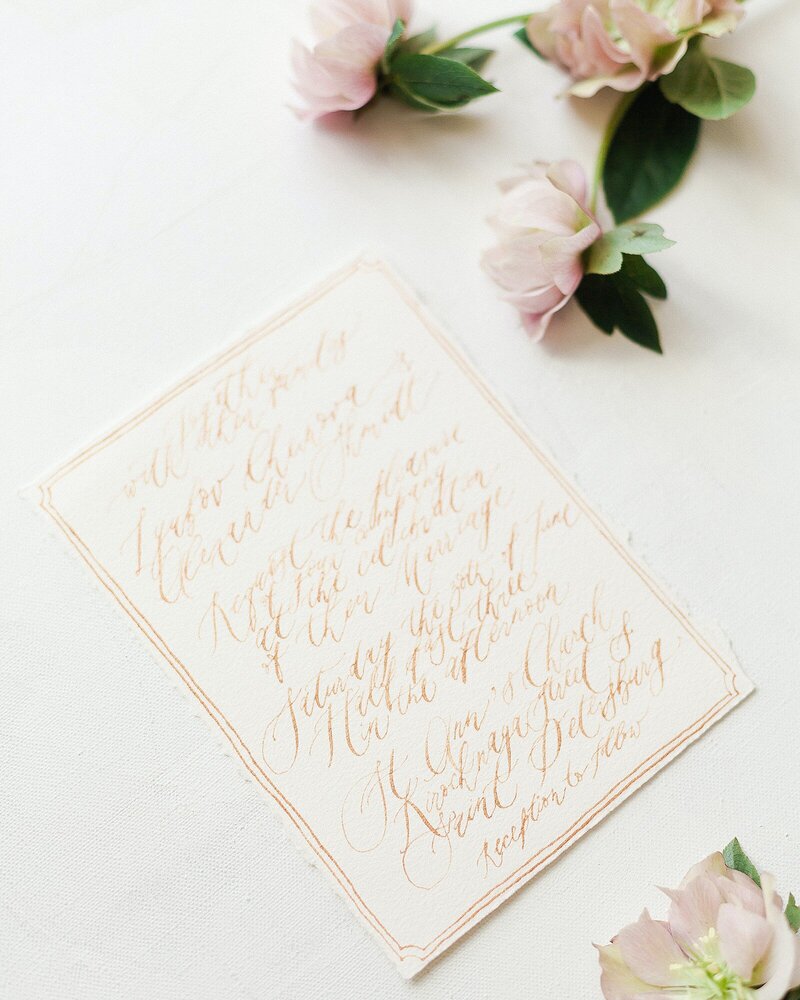 Together
with their families
Lyubov Chunova &
Alexander Shmidt
Request the pleasure
of your company
at the celebration
of their Marriage
Saturday the 30th of June
Half past three
in the afternoon
St. Ann's Church
Kirochnaya street 8.
Saint Petersburg
Reception to follow